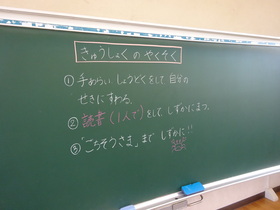 きゅうしょくのやくそく
① 手あらい、しょうどくをして、自分の
せきにすわる。
② 読書(1人で)をして、しずかにまつ。
③ 「ごちそうさま」まで しずかに!!